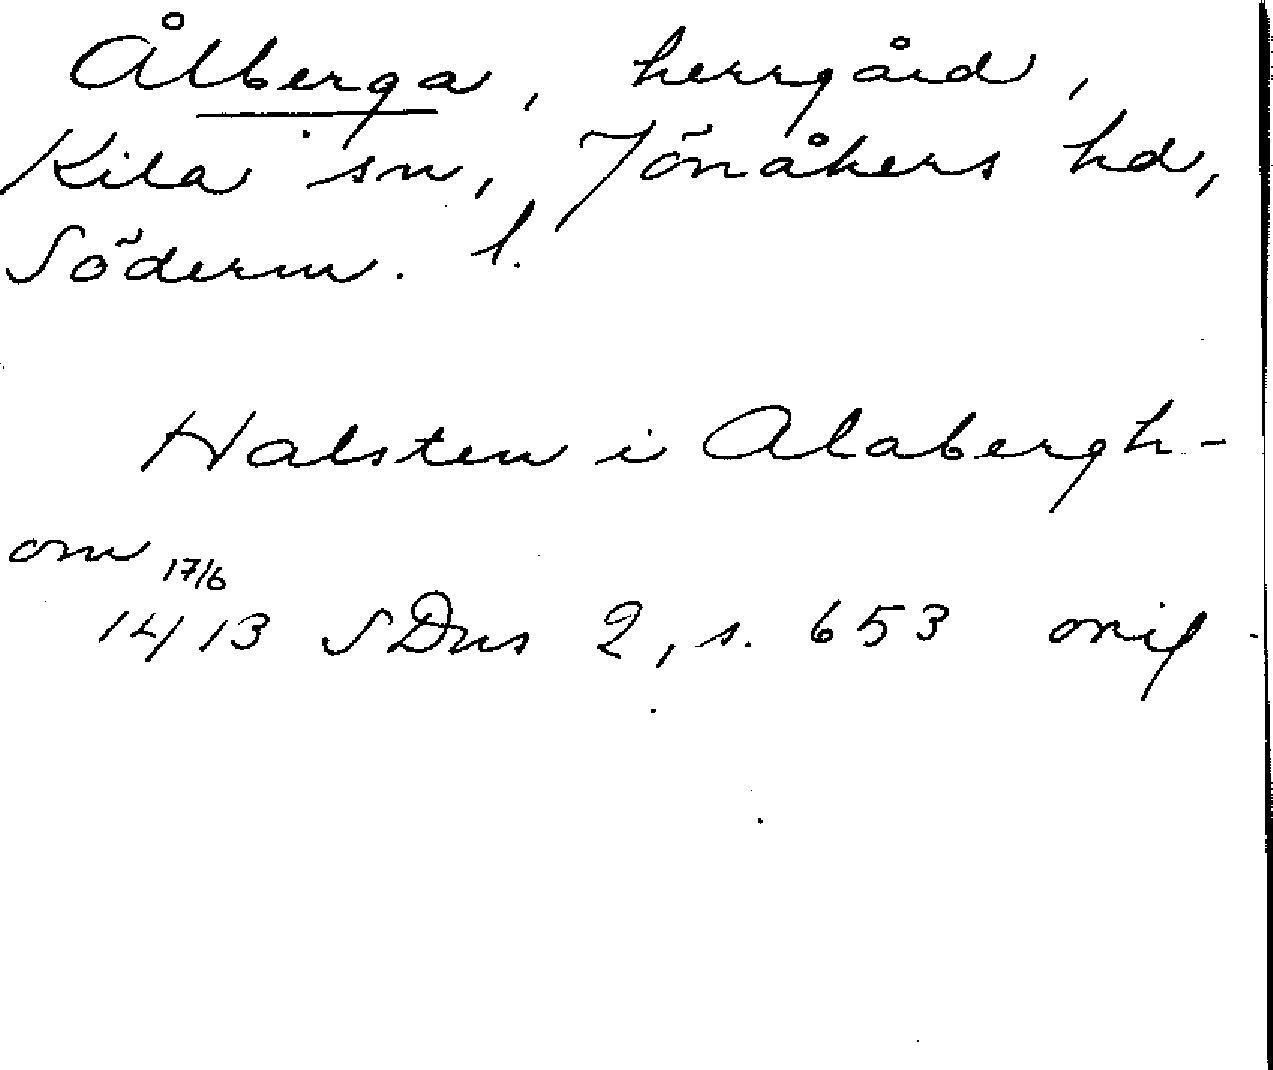 Ålberga, herrgård,
Kila sn, Jönåkers hd,
Söderm. l.
Halsten i Alabergh-
om 17/6
1413 SDns 2, s. 653 orig.